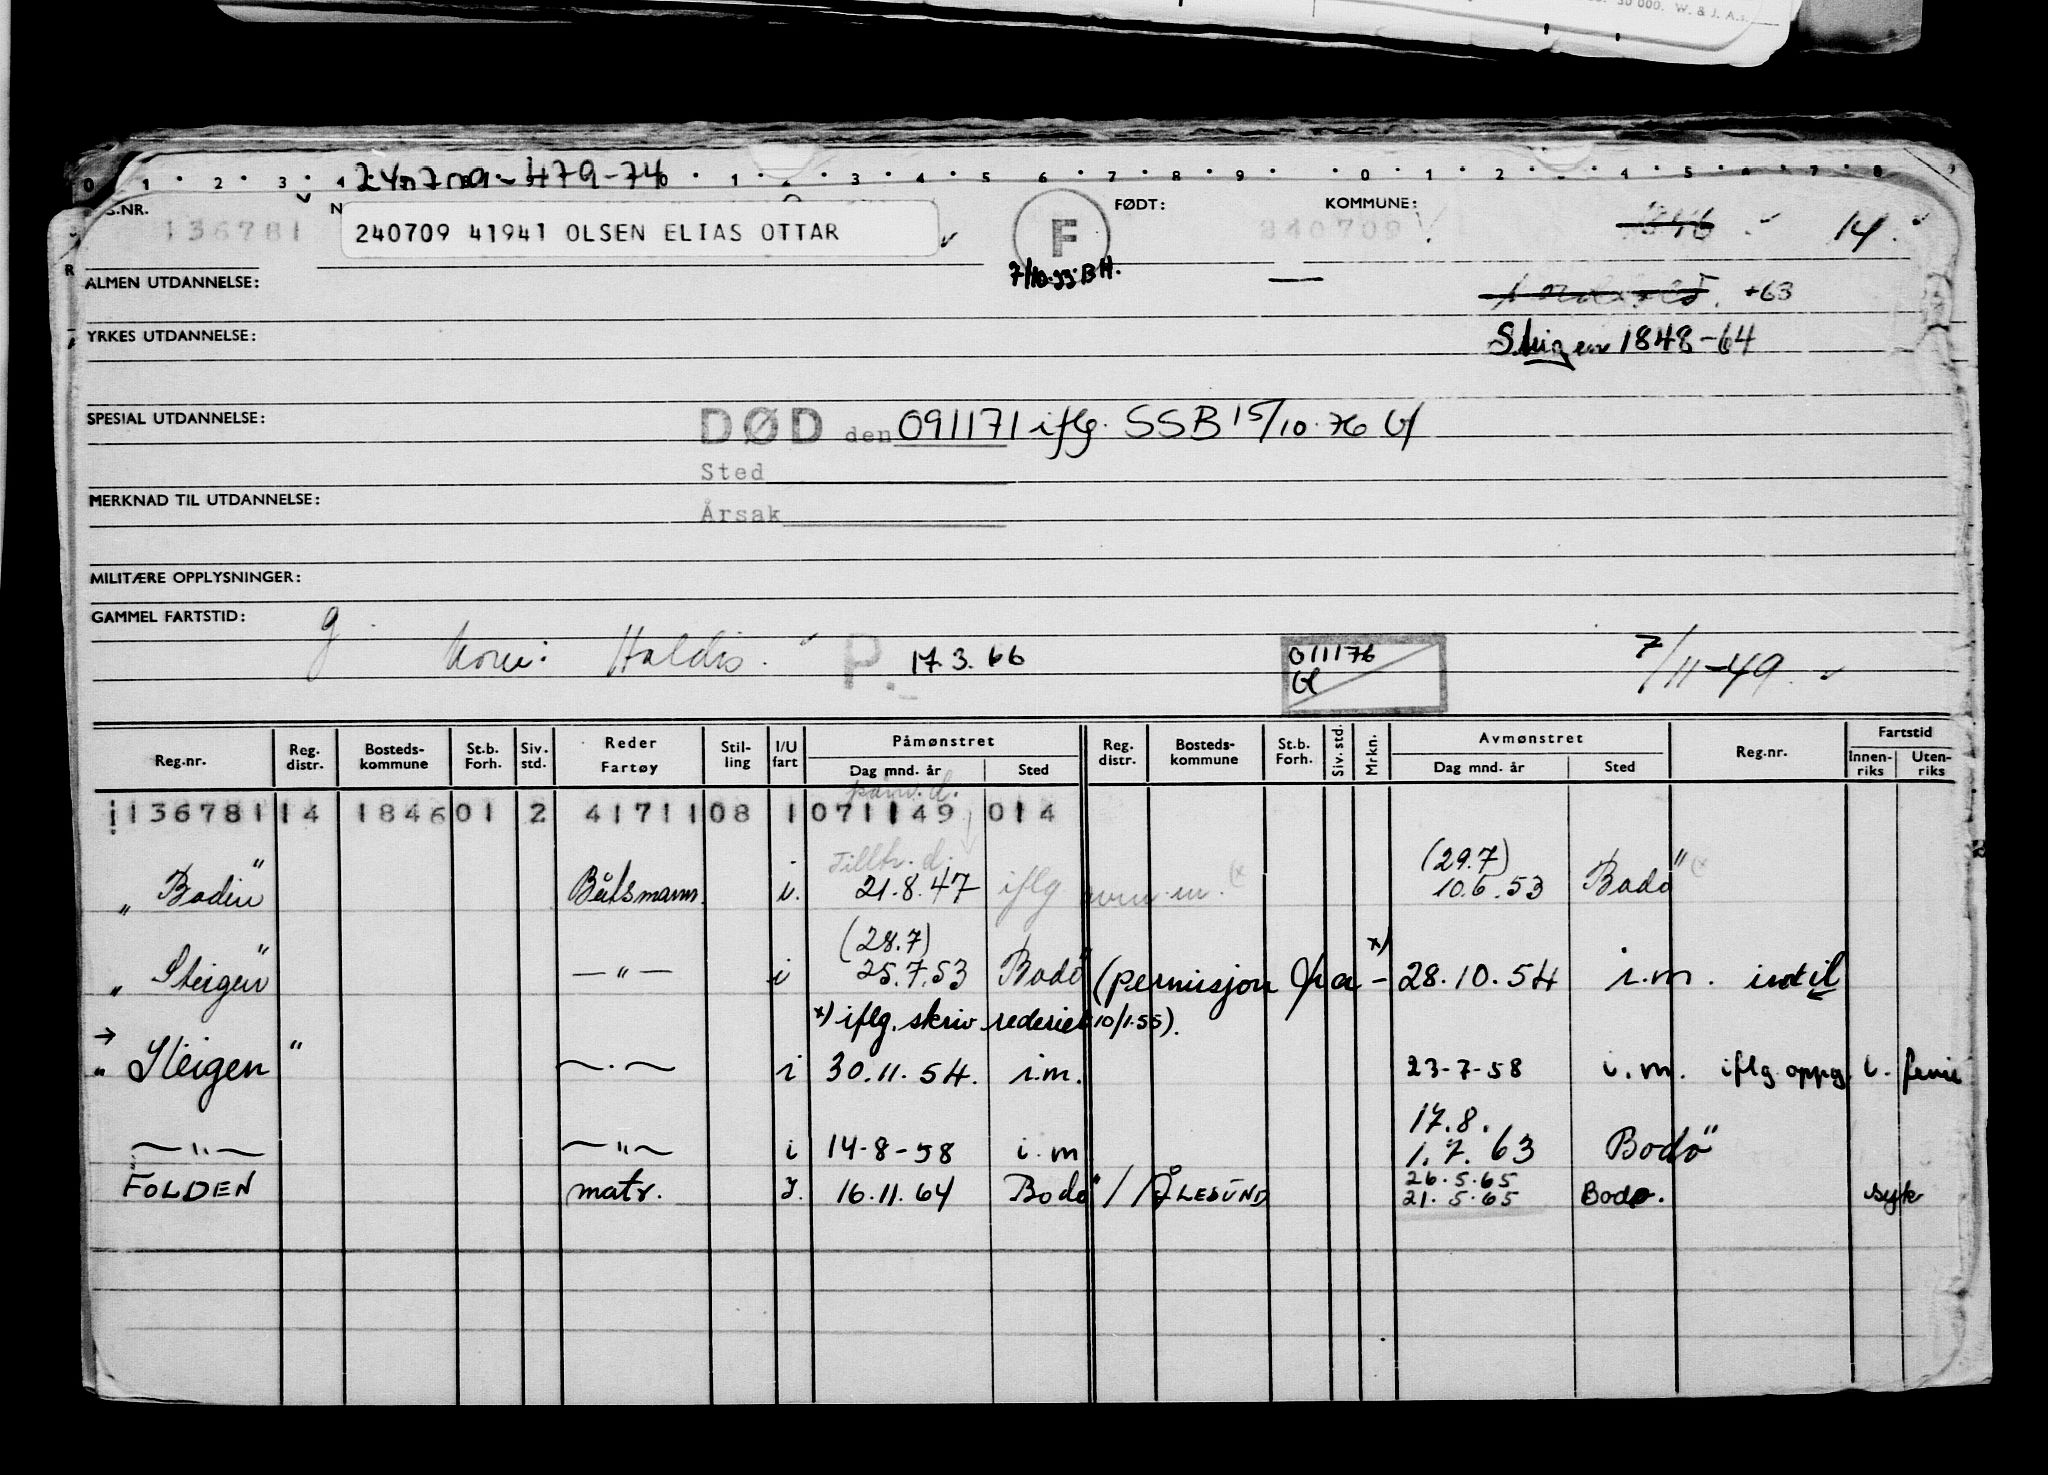 30 000. W. & J. A.s
0 1 2 3 4 0 1 2 3 4 5 6 7 8 9 0 1 2 4 5 6 7 8
240709-479-74
NR. FØDT: KOMMUNE:
136781 240709 41941 OLSEN ELIAS OTTAR F 240709 14.
7/10-55 BH.
ALMEN UTDANNELSE: +63
YRKES UTDANNELSE: Steigen 1848-64
SPESIAL UTDANNELSE: DØD den 091171 iflg. SSB 15/10.76
Sted
MERKNAD TIL UTDANNELSE: Årsak
MILITÆRE OPPLYSNINGER:
GAMMEL FARTSTID: g.
Kone: Haldis. P. 17.3.66 011176 7/11-49
Reg.nr. Reg. distr. Bosteds-kommune St.b. Forh. Siv. std. Reder Fartøy Stil-ling I/U fart Påmønstret Dag mnd. år Sted Reg. distr. Bosteds-kommune St.b. Forh. Siv. std. Mrkn. Avmønstret Dag mnd. år Sted Reg.nr. Fartstid Innen-riks Uten-riks
136781 14 1846 01 2 41711 08 1 071149 014
Tilltr. d. (29.7)
„Bodin" Båtsmann. i. 21.8.47 iflg 10.6.53 Bodø
(28.7) x)
„Steigen" —"— i 25.7.53 Bodø (permisjon fra - 28.10.54 i.m. inntil
x) iflg. skriv rederiet 10/1.55).
→
„Steigen" —"— i 30.11.54. i.m. 23-7-58 i.m. iflg oppg. i. ferie
17.8.
—"— —"— i 14-8-58 i.m 1.7.63 Bodø
26.5.65
FOLDEN matr. I. 16.11.64 Bodø // ÅLESUND 21.5.65 Bodø. syk